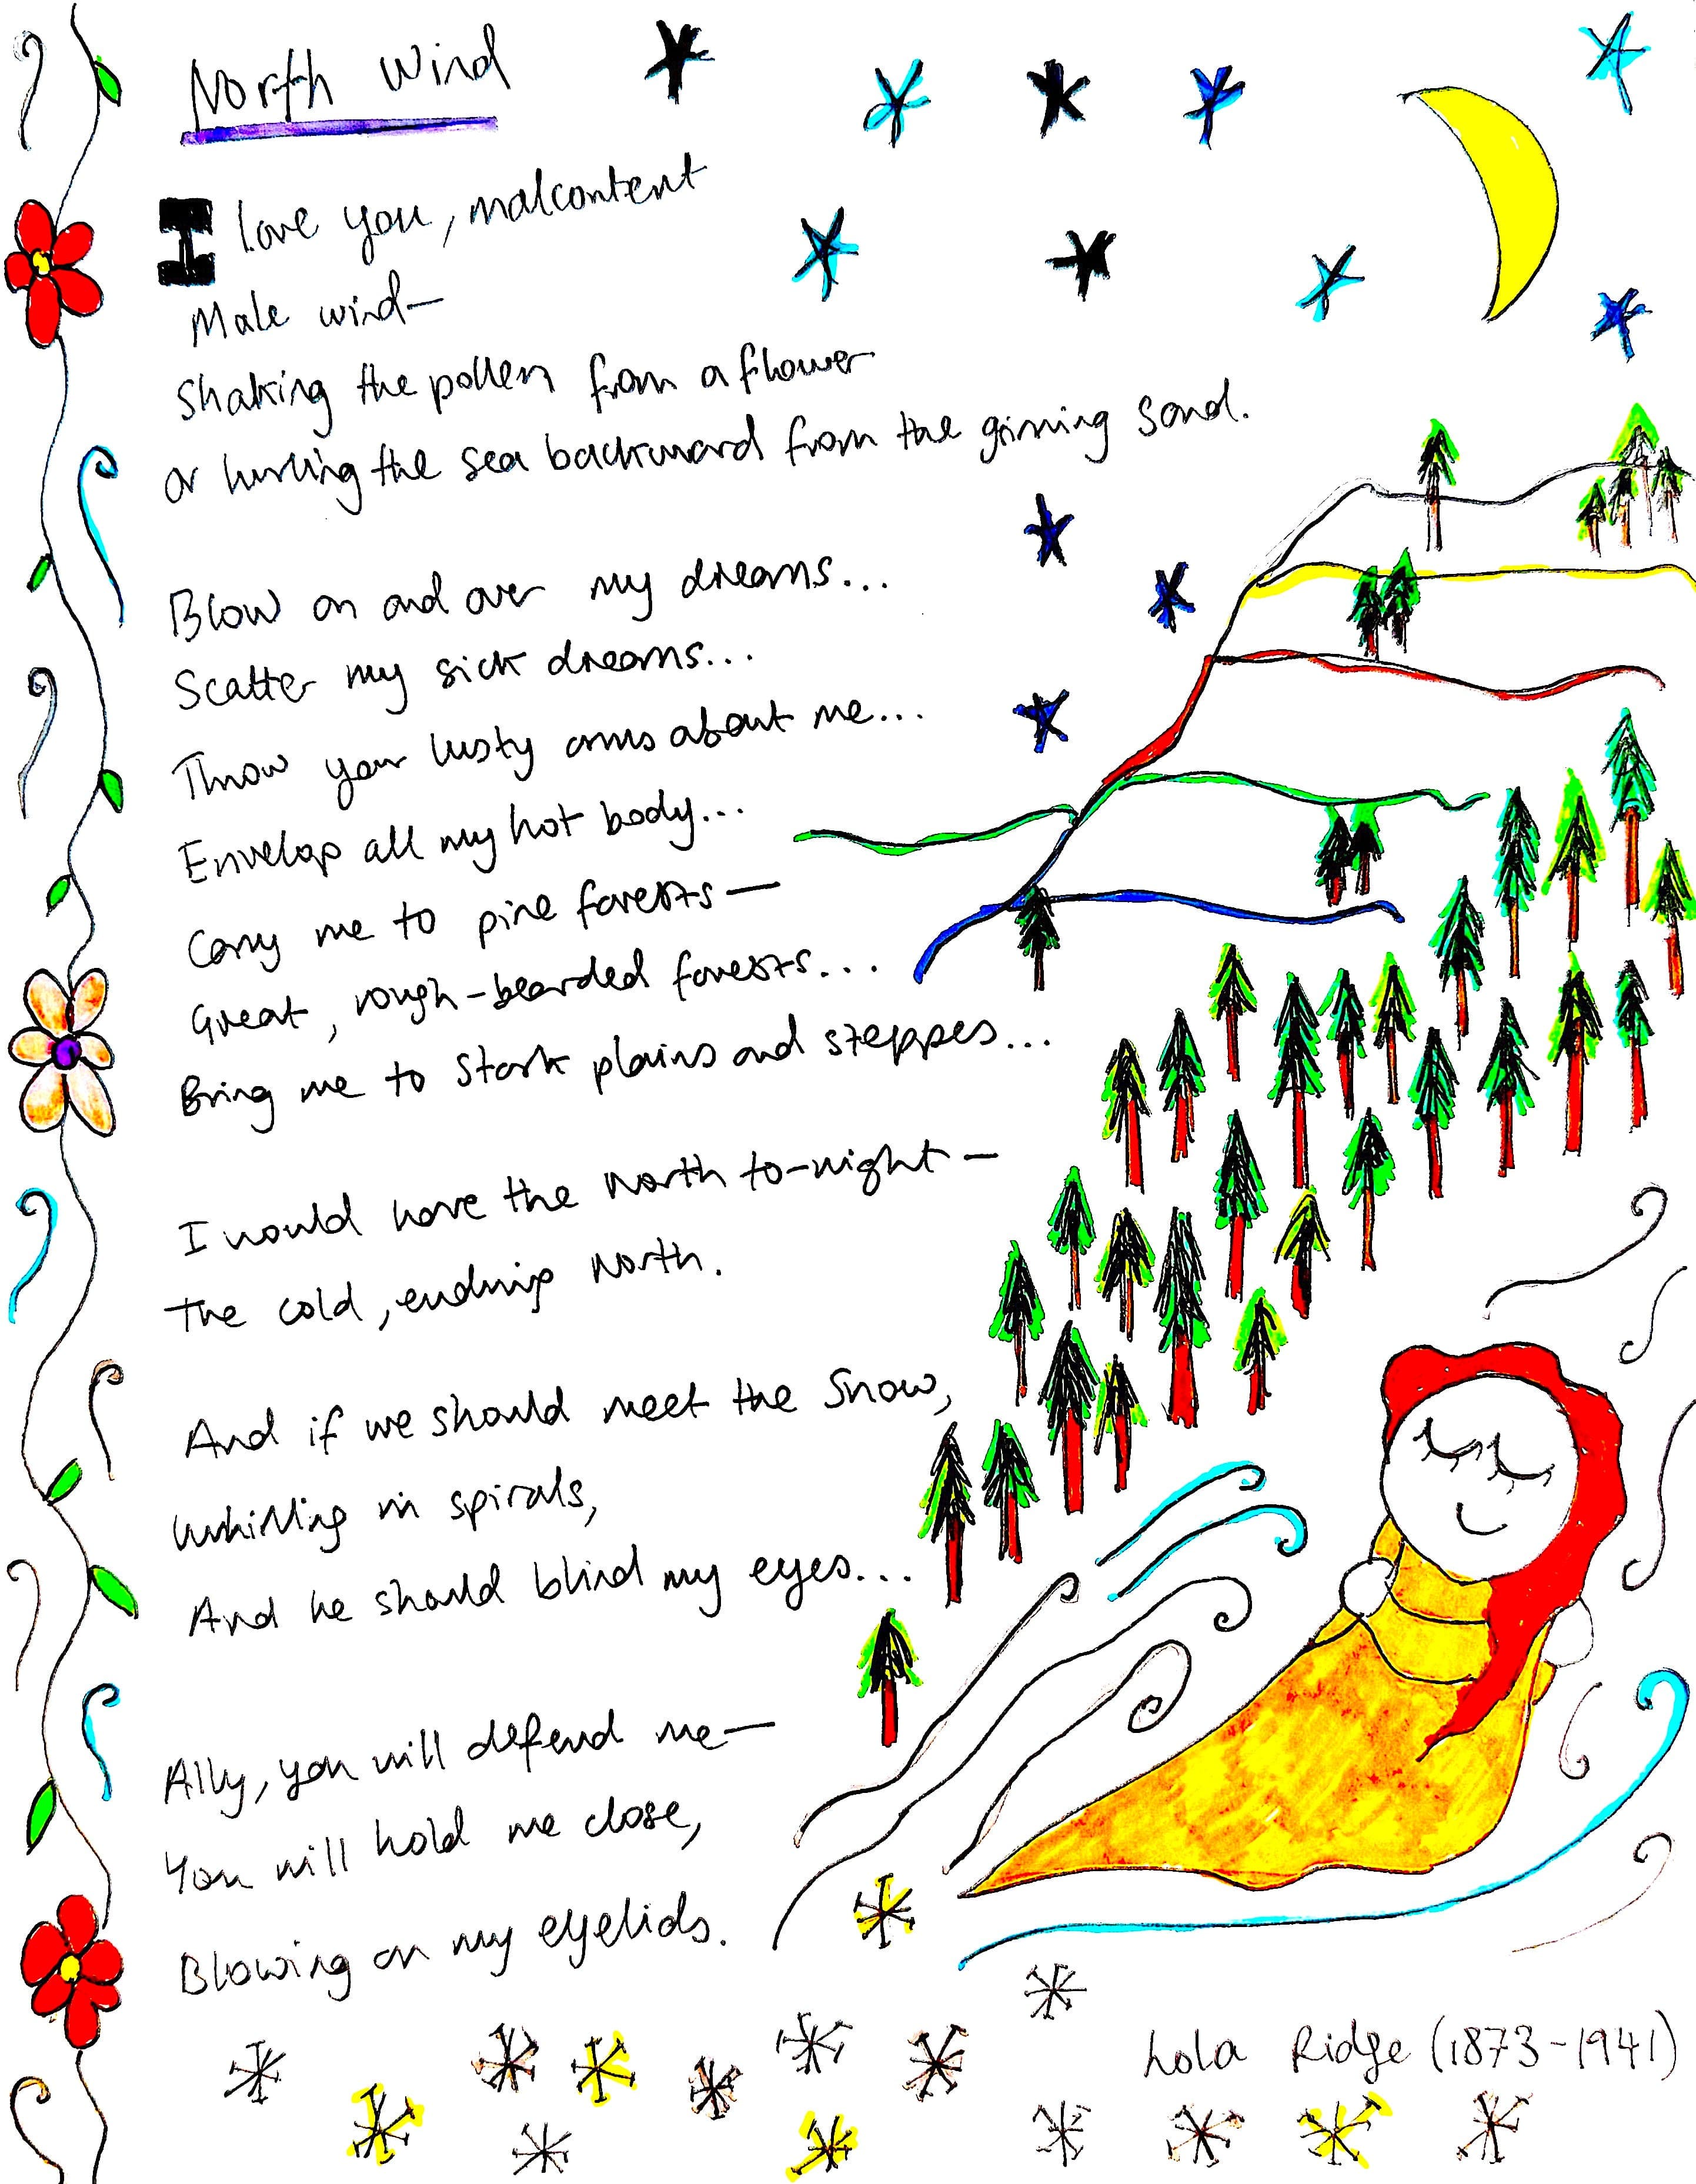 North Wind
I love you, malcontent
Male wind—
Shaking the pollen from a flower
or hurling the sea backward from the grinning sand.
Blow on and over my dreams...
Scatter my sick dreams...
Throw your lusty arms about me...
Envelop all my hot body...
Carry me to pine forests—
Great, rough-bearded forests...
Bring me to stark plains and steppes...
I would have the North to-night—
The cold, enduring North.
And if we should meet the Snow,
Whirling in spirals,
And he should blind my eyes...
Ally, you will defend me—
You will hold me close,
Blowing on my eyelids.
Lola Ridge (1873-1941)